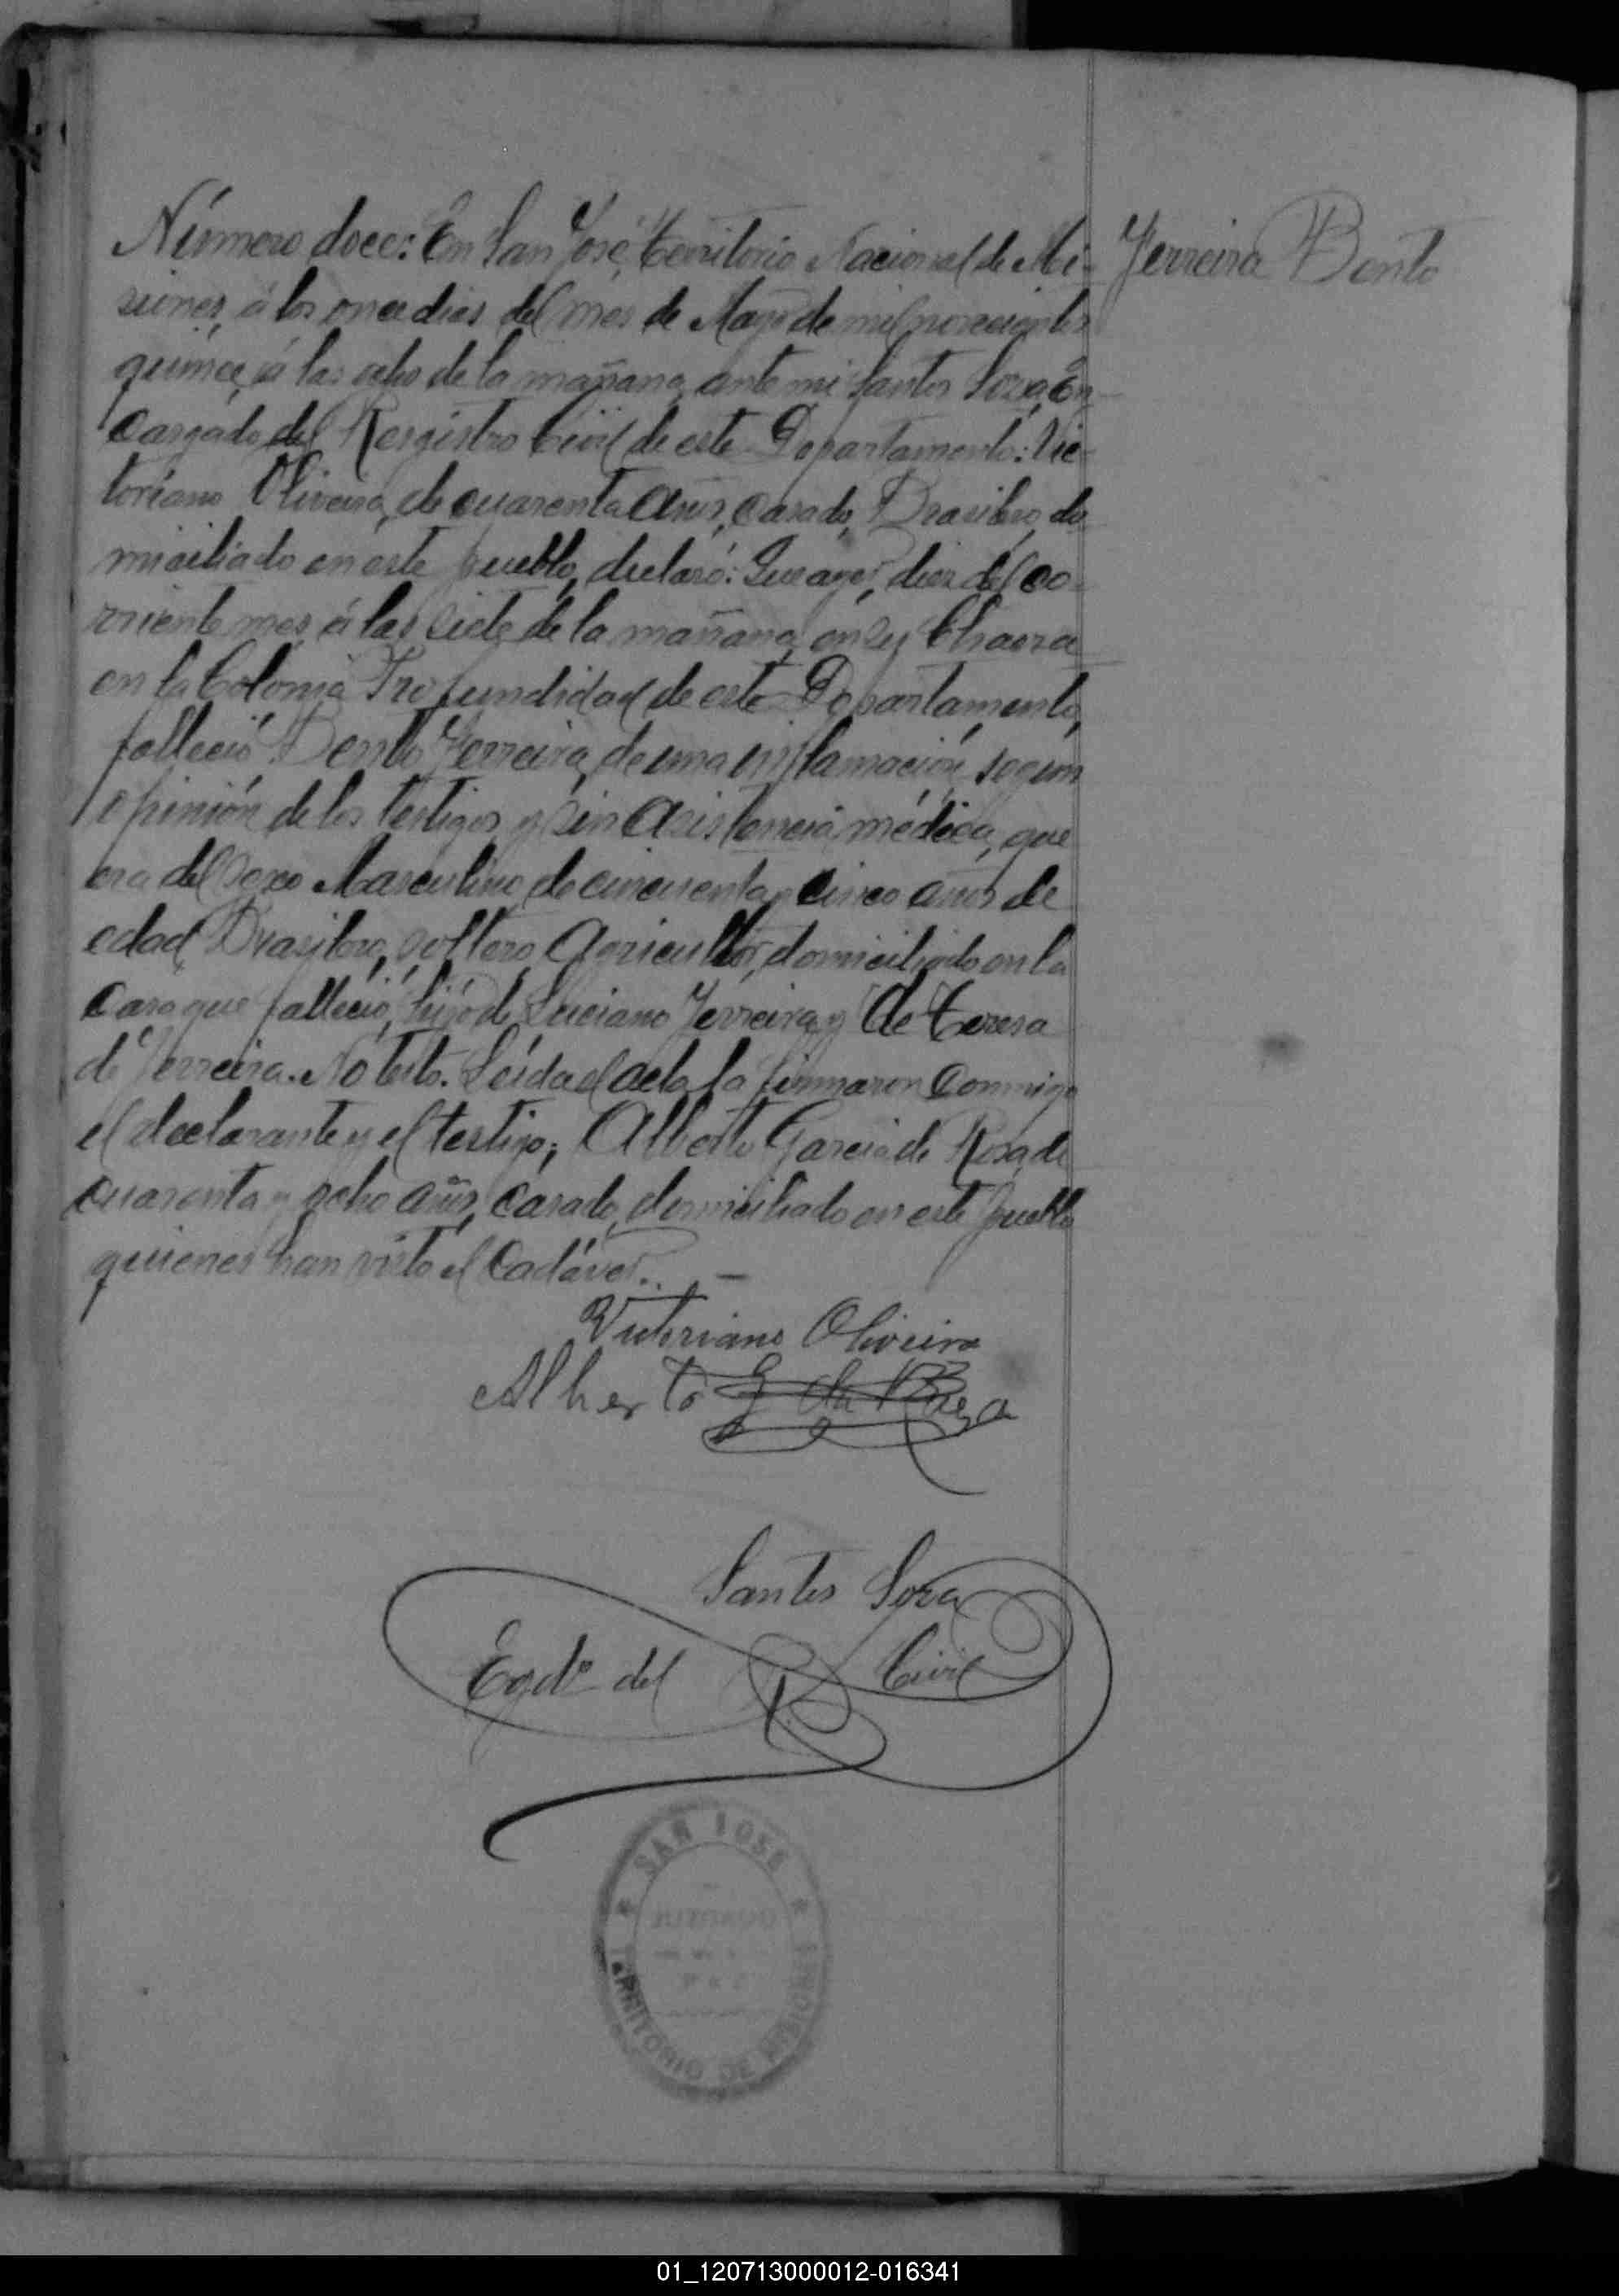 Número doce: En San José, Territorio Nacional de Mi-
Ferreira Bento
siones, á los once dias del mes de Mayo de mil novecientos
quince, á las ocho de la mañana, ante mi Santos Soza, En-
cargado del Registro Civil de este Departamento: Vic-
toriano Oliveira, de cuarenta años, casado, Brasilero, do-
miciliado en este pueblo, declaró: Que ayer, diez del co-
rriente mes, á las siete de la mañana, en su Chacra
en la Colonia Profundidad de este Departamento,
falleció Bento Ferreira, de una inflamación, segun
opinión de los testigos y sin asistencia médica, que
era del sexo Masculino, de cincuenta y cinco años de
edad, Brasilero, soltero, Agricultor, domiciliado en la
casa que falleció, hijo de Luciano Ferreira y de Teresa
de Ferreira. No testó. Leída el acta la firmaron conmigo
el declarante y el testigo; Alberto Garcia de Rosa, de
cuarenta y ocho años, casado, domiciliado en este pueblo
quienes han visto el Cadáver. —
Victoriano Oliveira
Alberto G da
Santos Soza
Egdo del R. Civil
SAN JOSE
TERRITORIO DE MISIONES
01_120713000012-016341